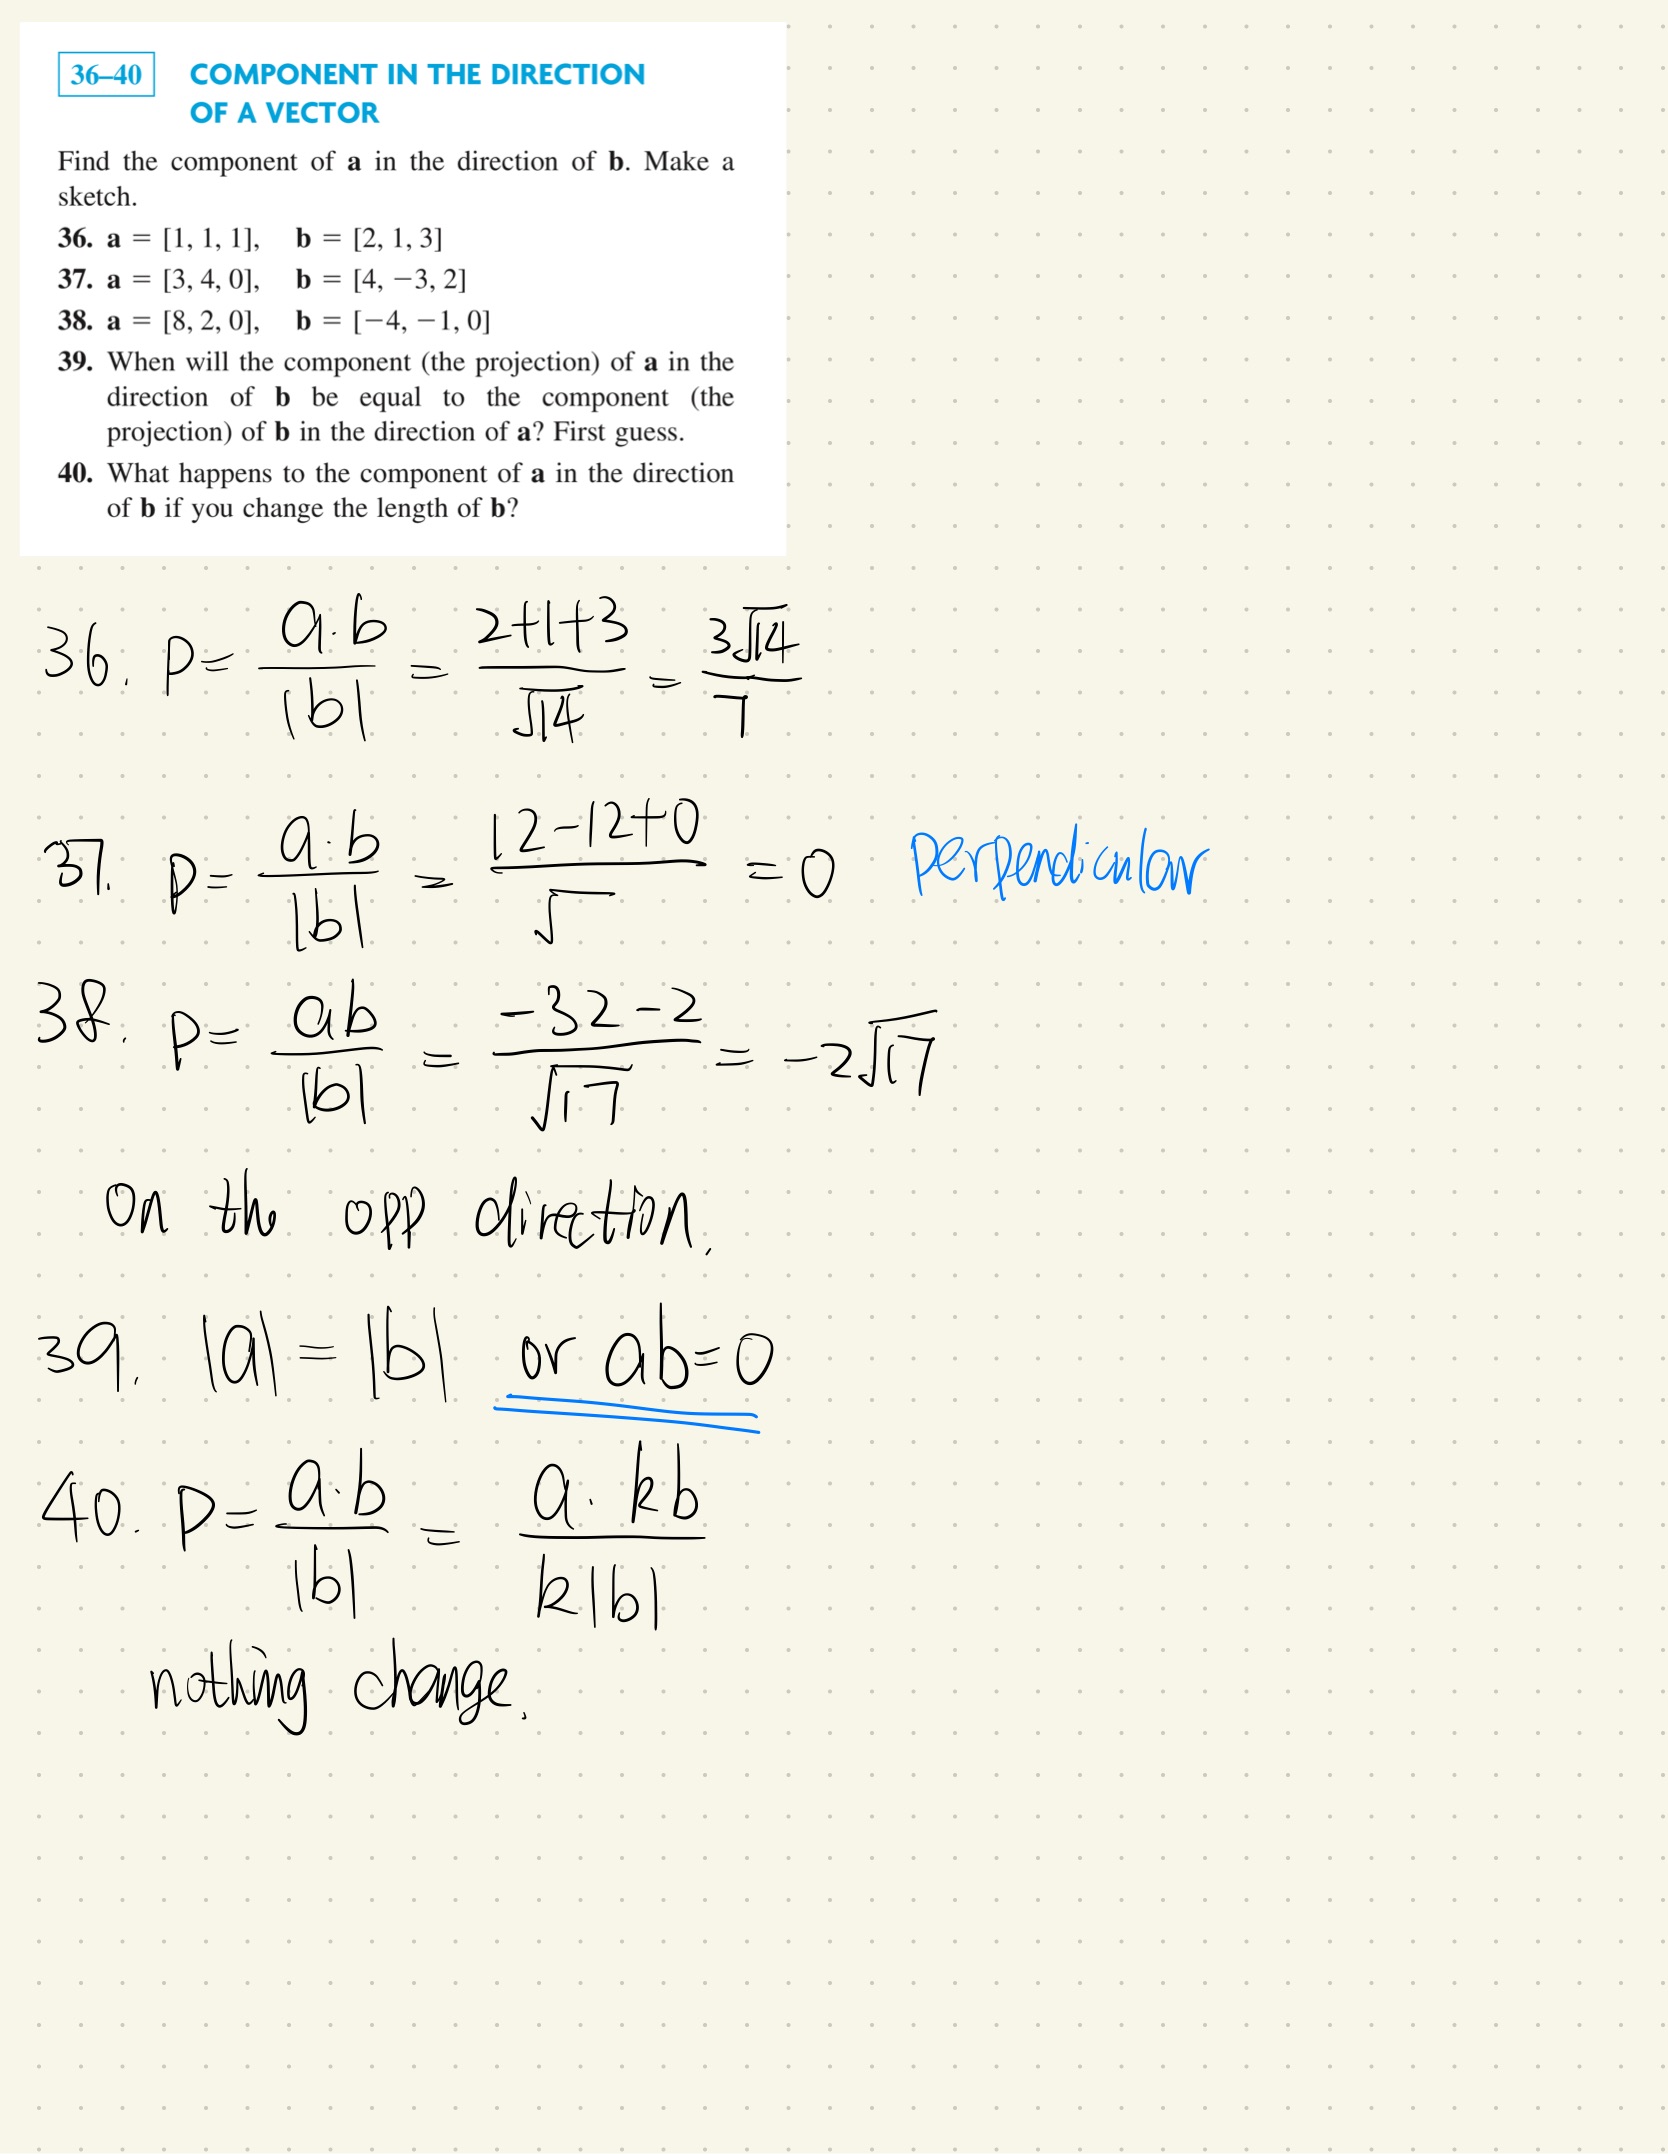 36–40 COMPONENT IN THE DIRECTION
OF A VECTOR
Find the component of a in the direction of b. Make a
sketch.
36. a = [1, 1, 1], b = [2, 1, 3]
37. a = [3, 4, 0], b = [4, −3, 2]
38. a = [8, 2, 0], b = [−4, −1, 0]
39. When will the component (the projection) of a in the
direction of b be equal to the component (the
projection) of b in the direction of a? First guess.
40. What happens to the component of a in the direction
of b if you change the length of b?
36. p = a·b / |b| = 2+1+3 / √14 = 3√14 / 7
37. p = a·b / |b| = 12-12+0 / √ = 0 perpendicular
38. p = ab / |b| = -32-2 / √17 = -2√17
on the opp direction.
39. |a| = |b| or ab=0
40. p = a·b / |b| = a·kb / k|b|
nothing change.